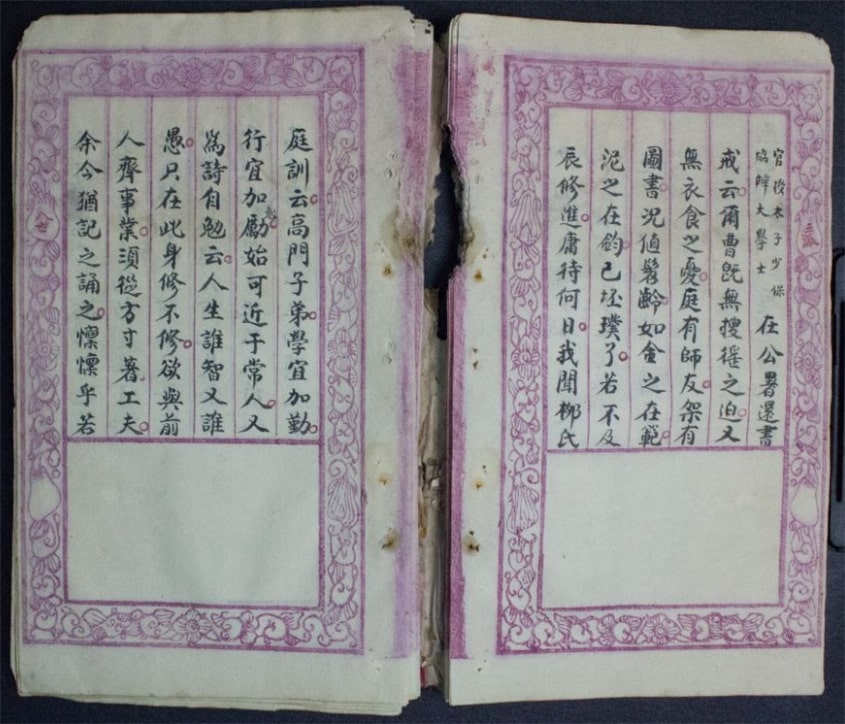 官授太子少保
協辦大學士
在公署還書
戒云爾曹旣無搜徭之迫又
無衣食之憂庭有師友架有
圖書况值髫齡如金之在範
泥之在鈞已坯璞了若不及
辰修進庸待何日我聞柳氏
庭訓云高門子弟學宜加勤
行宜加勵始可近于常人又
爲詩自勉云人生誰智又誰
愚只在此身修不修欲與前
人齊事業須從方寸著工夫
余今猶記之誦之懍懍乎若
世